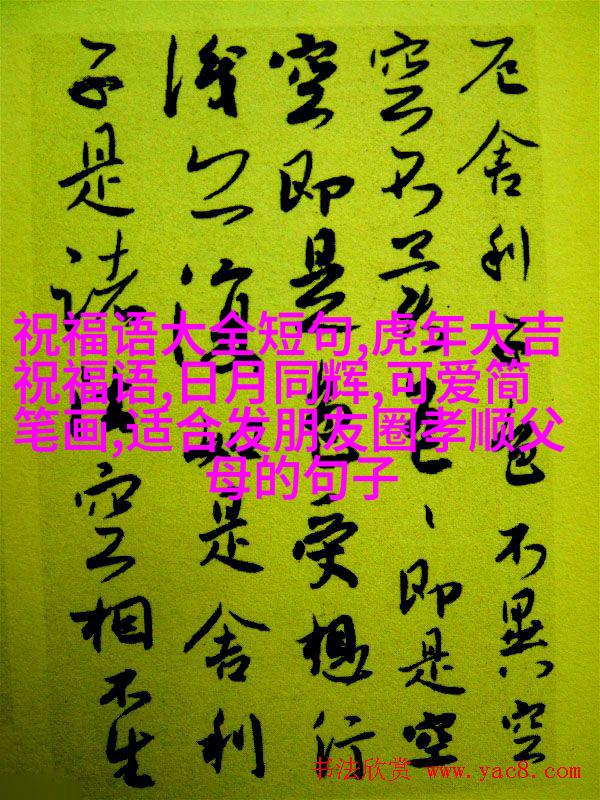 厄舍利子色不異空
空不異色、即是空
空即是色受想行
識亦復如是舍利
子是諸法空相不生
祝福语大全短句,虎年大吉
祝福语,日月同辉,可爱简
笔画,适合发朋友圈孝顺父
母的句子
书法欣赏 www.yac8.com